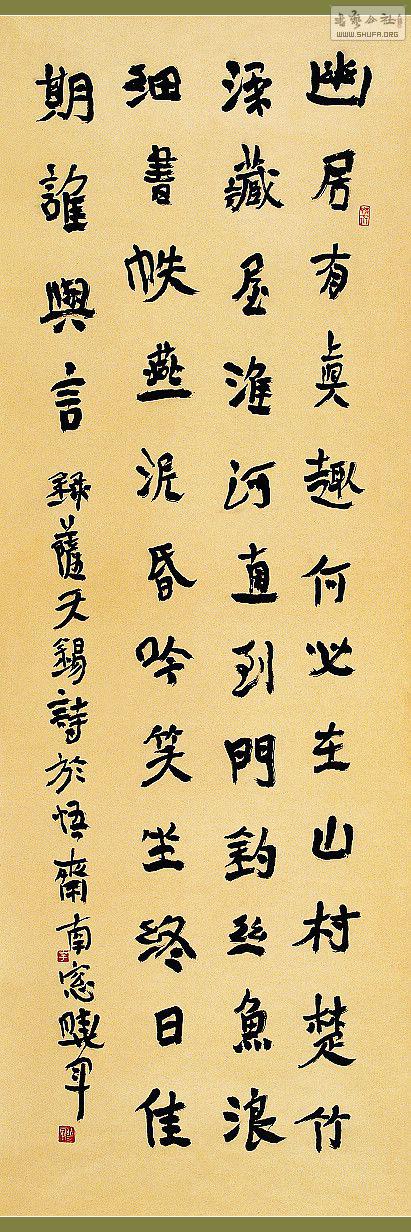 幽居有眞趣何必在山村楚竹
深藏屋淮河直到門釣丝魚浪
細書帙燕泥昏吟笑坐終日佳
期誰與言
錄薩天錫詩於悟齋南窓曉
書藝公社
WWW.SHUFA.ORG